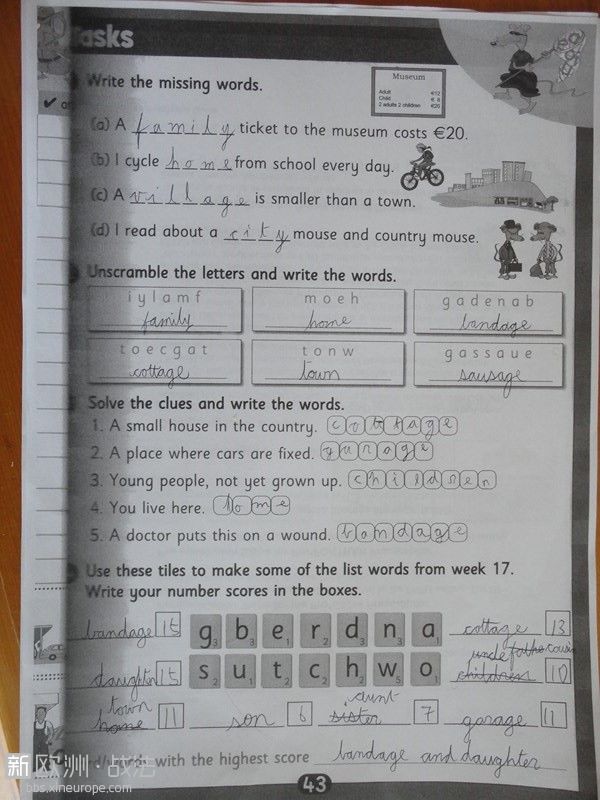 Tasks
Write the missing words.
Museum
Adult €12
Child € 8
2 adults 2 children €20
(a) A family ticket to the museum costs €20.
(b) I cycle home from school every day.
(c) A village is smaller than a town.
(d) I read about a city mouse and country mouse.
Unscramble the letters and write the words.
iylamf moeh gadenab
family home bandage
toecgat tonw gassaue
cottage town sausage
Solve the clues and write the words.
1. A small house in the country. cottage
2. A place where cars are fixed. garage
3. Young people, not yet grown up. children
4. You live here. home
5. A doctor puts this on a wound. bandage
Use these tiles to make some of the list words from week 17.
Write your number scores in the boxes.
bandage 15 g3 b3 e1 r2 d2 n3 a1 cottage 13
uncle father cousin
daughter 15 s2 u2 t1 c2 h3 w5 o2 children 10
town aunt
home 11 son 6 sister 7 garage 11
with the highest score bandage and daughter
43
新欧洲·战法
bbs.xineurope.com